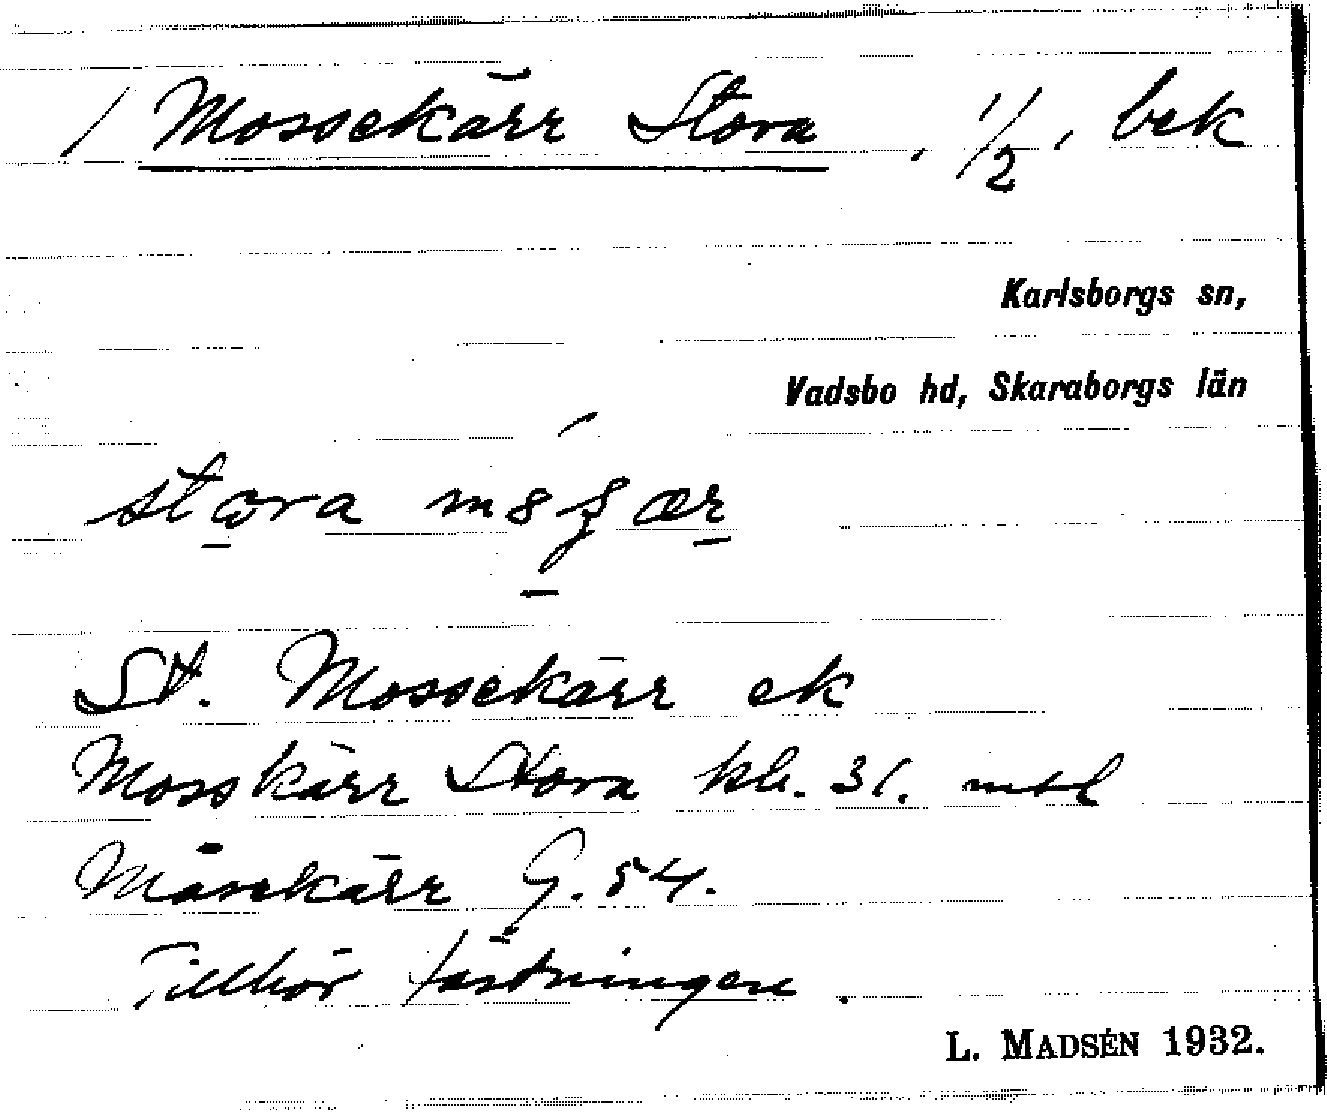 / Mossekärr Stora, 1/2, bek
Karlsborgs sn,
Vadsbo hd, Skaraborgs län
stora
St. Mossekärr ek
Mosskärr Stora kh. 31. mtl
Måsekärr G. 54.
Tillhör fästningen.
L. MADSÉN 1932.